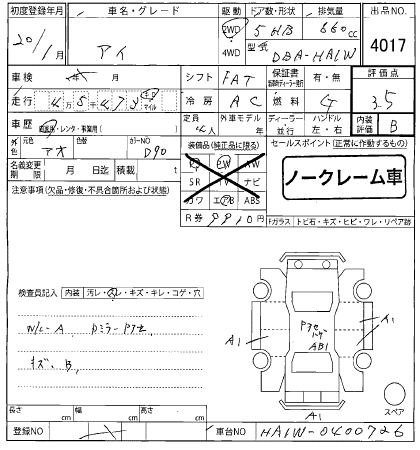 初度登録年月 車名・グレード 駆動 ドア数・形状 排気量 出品NO.
20/1月 アイ 2WD 5 H/B 660cc 4017
4WD 型式 DBA-HA1W
車検 年 月 シフト FAT 保証書 有・無 評価点
走行 4万5千473 キロ マイル 冷房 AC 燃料 G 3.5
車歴 自家用・レンタ・事業用( ) 定員 4人 外車モデル 年 ディーラー・並行 ハンドル 左・右 内装評価 B
外色 元色 アオ カラーNO D90 装備品(純正品に限る) セールスポイント(正常に作動するもの)
PS PW AW
名義変更期限 月 日迄 積載 t SR TV ナビ ノークレーム車
注意事項(欠品・修復・不具合箇所および状態) カワ エアB ABS
R券 9910円 Fガラス トビ石・キズ・ヒビ・ワレ・リペア跡
検査員記入 内装 汚レ・スレ・キズ・キレ・コゲ・穴
N/C-A Dミラー Pアセ
キズ、B、
A1 Pアセ ハゲ AB1 A1
A1 スペア
長さ cm 幅 cm 高さ cm
登録NO 車台NO HA1W-0400726